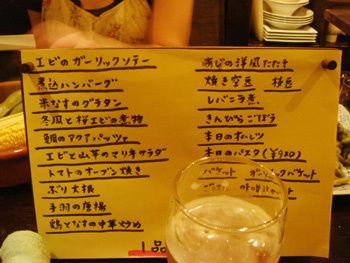 エビのガーリックソテー
煮込ハンバーグ
米なすのグラタン
冬瓜と桜エビの煮物
鯛のアクアパッツァ
エビと山芋のマリネサラダ
トマトのオーブン焼き
ぶり大根
手羽の唐揚
鶏となすの中華炒め
1品
あじの洋風たたき
焼き空豆 枝豆
レバニラ煮
きんぴらごぼう
本日のオムレツ
本日のパスタ(¥980)
バケット ガーリックバケット